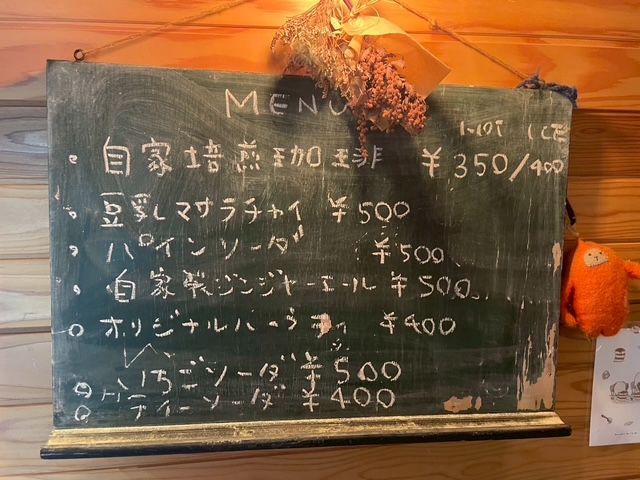 MENU
HOT ICE
自家培煎珈琲 ¥350/400
豆乳マサラチャイ ¥500
パインソーダ ¥500
自家製ジンジャーエール ¥500
オリジナルハーブティ ¥400
いちごソーダ ¥500
ティーソーダ ¥400